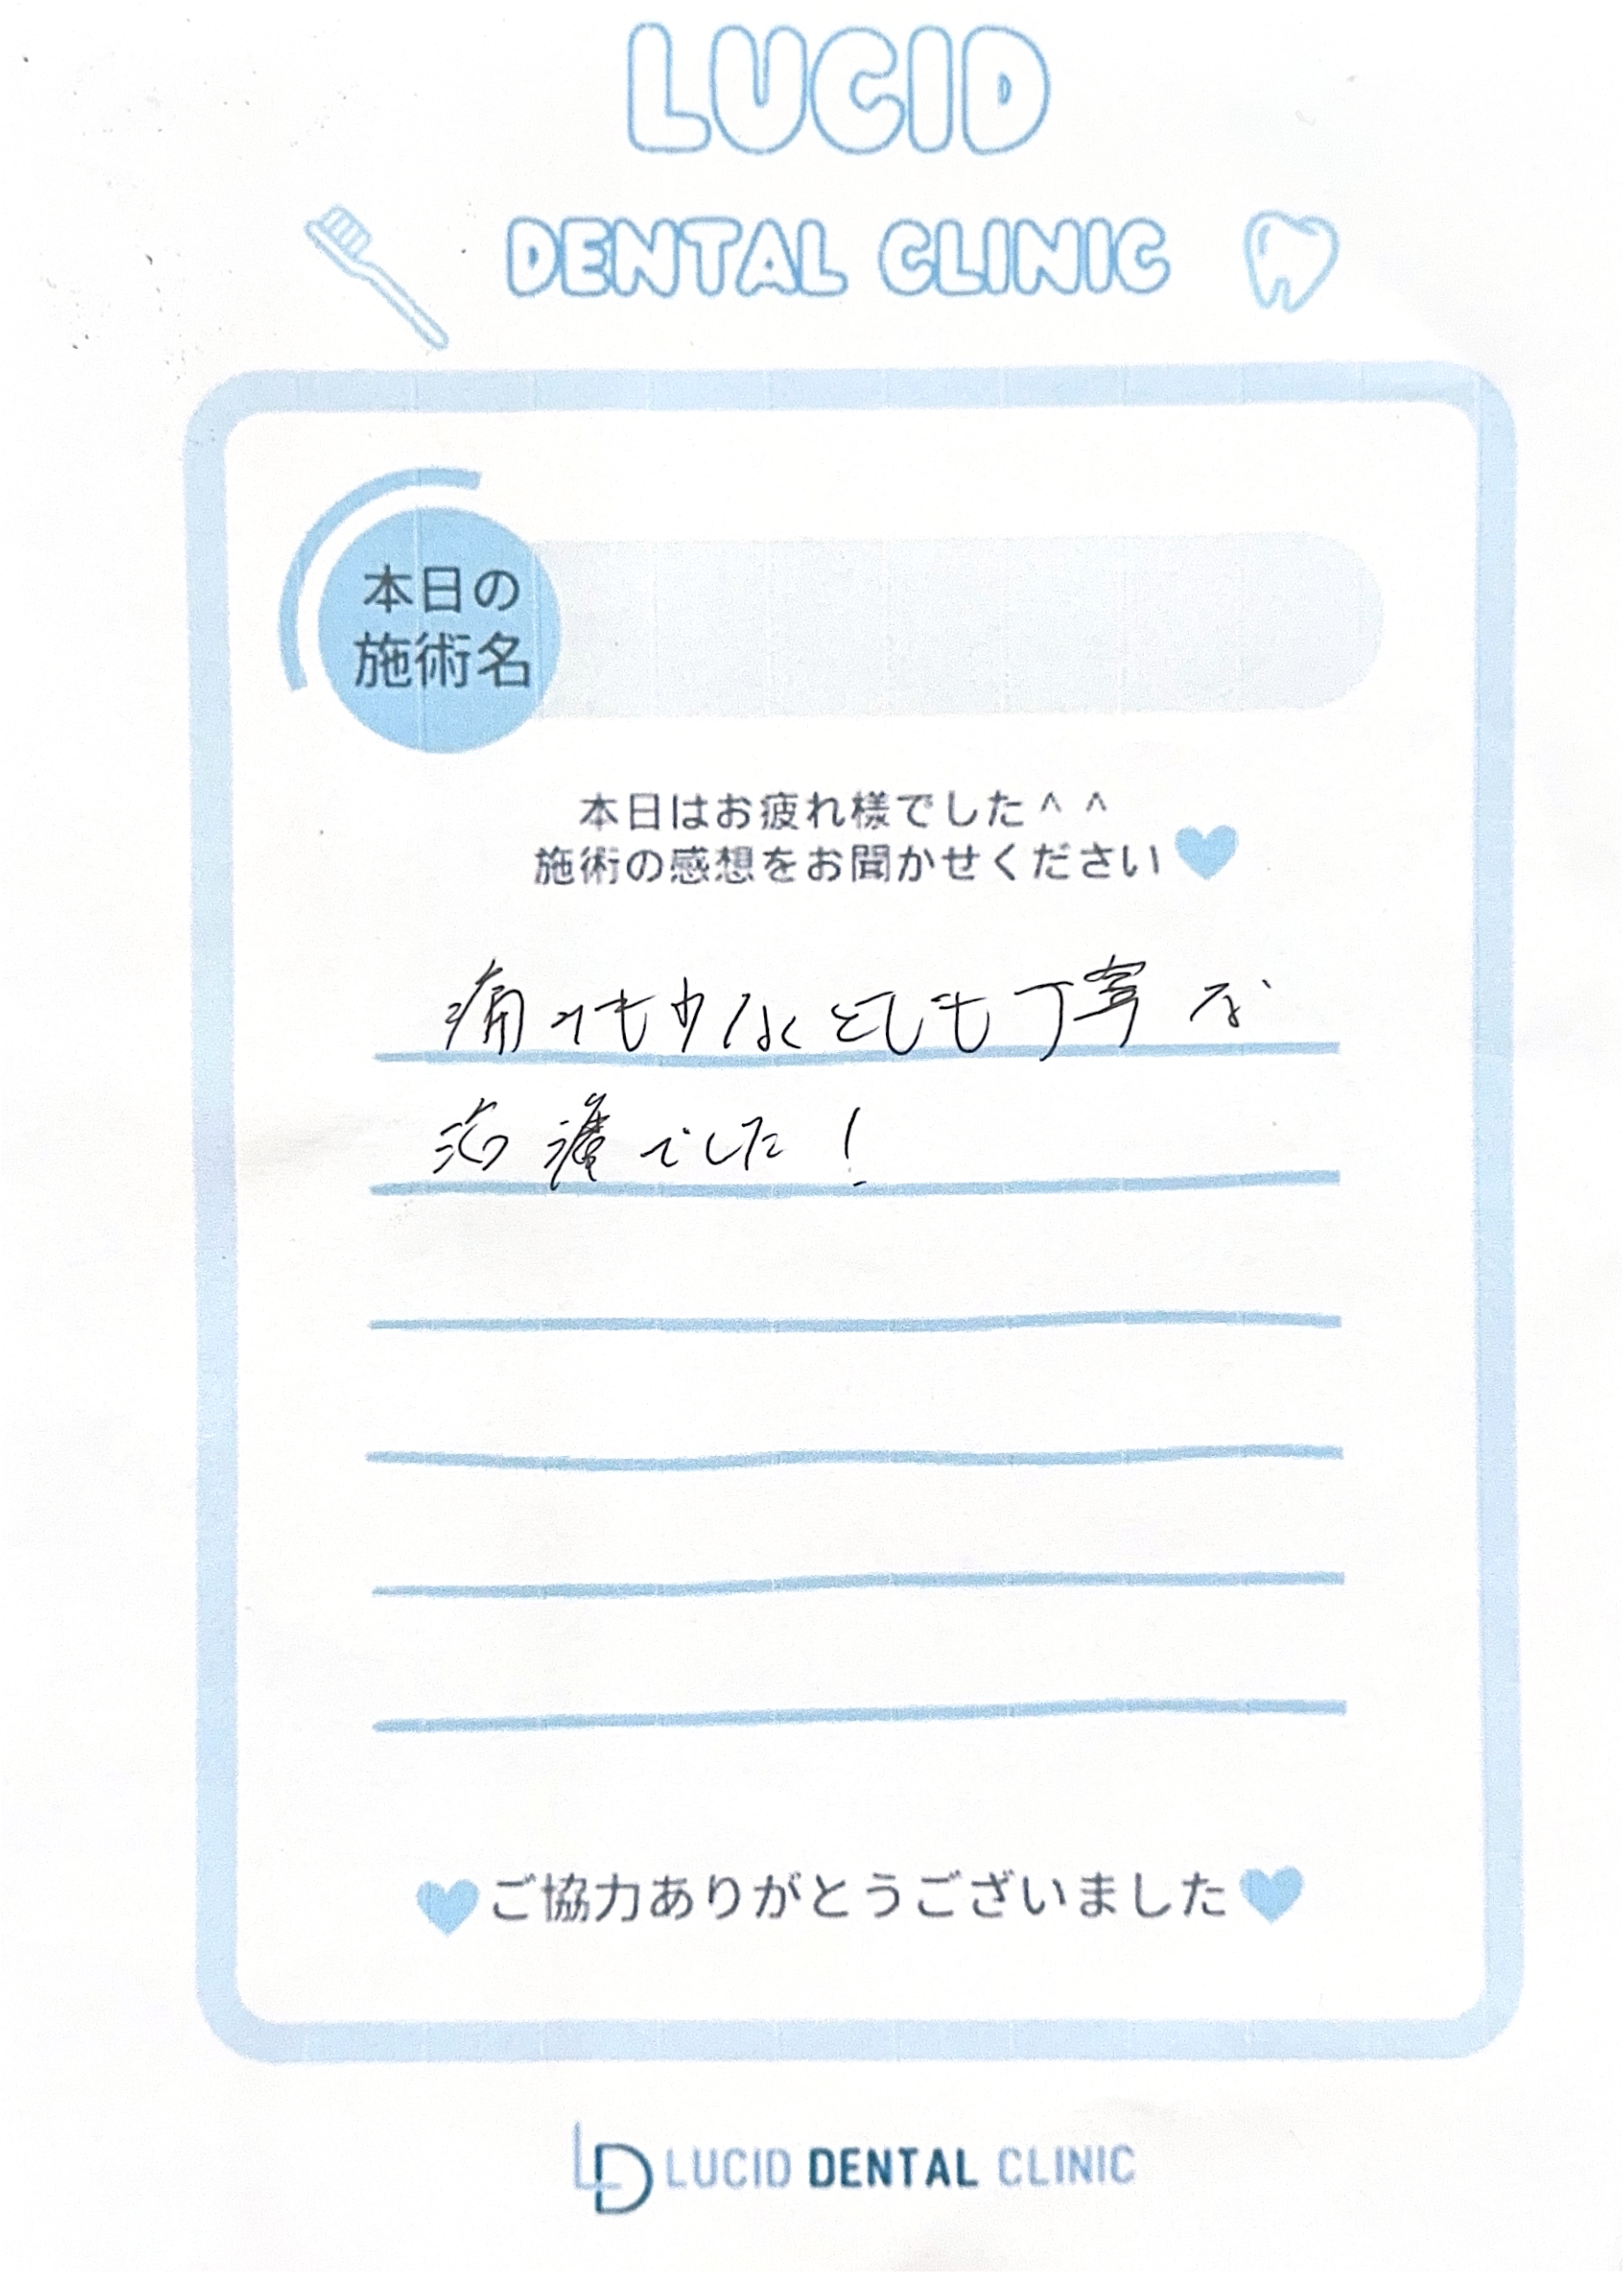 LUCID
DENTAL CLINIC
本日の
施術名
本日はお疲れ様でした^ ^
施術の感想をお聞かせください
痛みも少なくとても丁寧な
治療でした!
ご協力ありがとうございました
LD LUCID DENTAL CLINIC